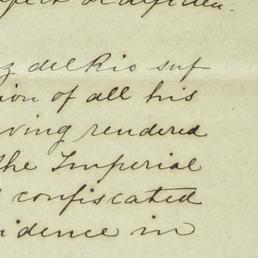 z del Rio suf
ion of all his
ving rendered
the Imperial
confiscated
idence in